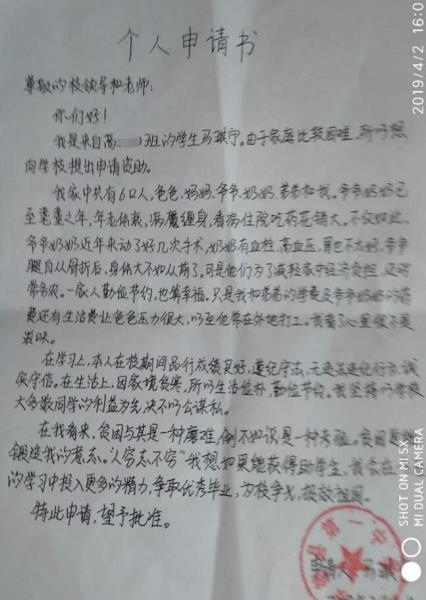 个人申请书
尊敬的校领导和老师:
你们好!
我是来自高 班的学生马琪宁。由于家庭比较困难,所以想
向学校提出申请资助。
我家中共有6口人,爸爸、妈妈、爷爷、奶奶、弟弟和我。爷爷奶奶已
至耄耋之年,年老体衰,病魔缠身,看病住院吃药花销大。不仅如此,
爷爷奶奶近年来动了好几次手术,奶奶有血栓、高血压、胃也不太好,爷爷
腿自从骨折后,身体大不如从前了。可是他们为了减轻家中经济负担,还时
常务农。一家人勤俭节约,也算幸福。只是我和弟弟的学费及爷爷奶奶的药
费还有生活费让爸爸压力很大,以至他常在外地打工。我看了心里很不是
滋味。
在学习上,本人在校期间品行成绩良好,遵纪守法,无违法违纪行为,诚
实守信。在生活上,因家境贫寒,所以生活俭朴,勤俭节约。我坚持以学校
大多数同学的利益为先,决不以公谋私。
在我看来,贫困与其是一种磨难,倒不如说是一种考验。贫困是
锻造我的意志。“人穷志不穷”我想如果能获得助学生,我会在
的学习中投入更多的精力,争取优秀毕业,为校争光,报效祖国。
特此申请,望予批准。
申请人 马琪
2019/4/2 16:0
SHOT ON MI 5X
MI DUAL CAMERA